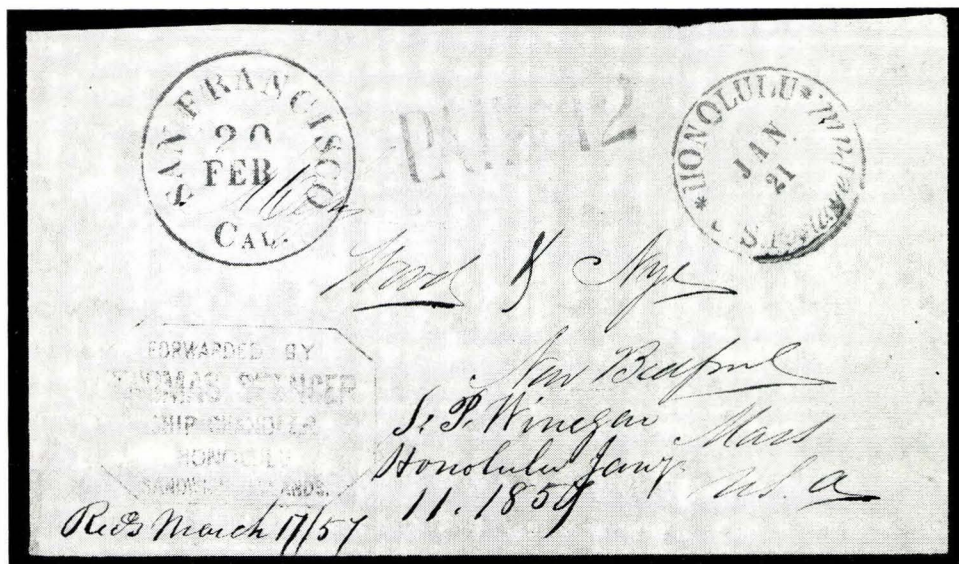 SAN FRANCISCO
20
FEB
CAL.
12
*HONOLULU*
U.S. Postage Paid
JAN
21
Wood & Nye
New Bedford
Mass
U.S.a
FORWARDED BY
THOMAS SPENCER
SHIP CHANDLER
HONOLULU
SANDWICH ISLANDS.
S. P. Winegar
Honolulu Jany
11. 1857
Recd March 17/57